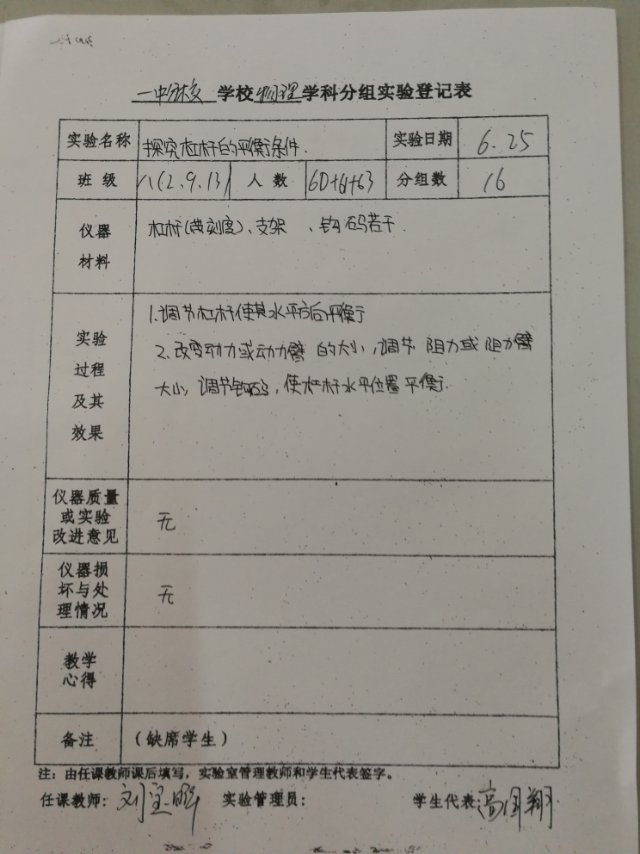 一中分校 学校 物理 学科分组实验登记表
实验名称 探究杠杆的平衡条件. 实验日期 6.25
班 级 八(2.9.13) 人 数 60+61+63 分组数 16
仪器 杠杆(带刻度)、支架 、钩码若干.
材料
实验 1.调节杠杆使其水平方向平衡
过程 2.改变动力或动力臂 的大小,调节 阻力或 阻力臂
及其 大小,调节钩码,使杠杆水平位置平衡.
效果
仪器质量
或实验 无
改进意见
仪器损
坏与处 无
理情况
教学
心得
备注 (缺席学生)
注:由任课教师课后填写,实验室管理教师和学生代表签字。
任课教师: 刘 实验管理员: 学生代表: 高国翔